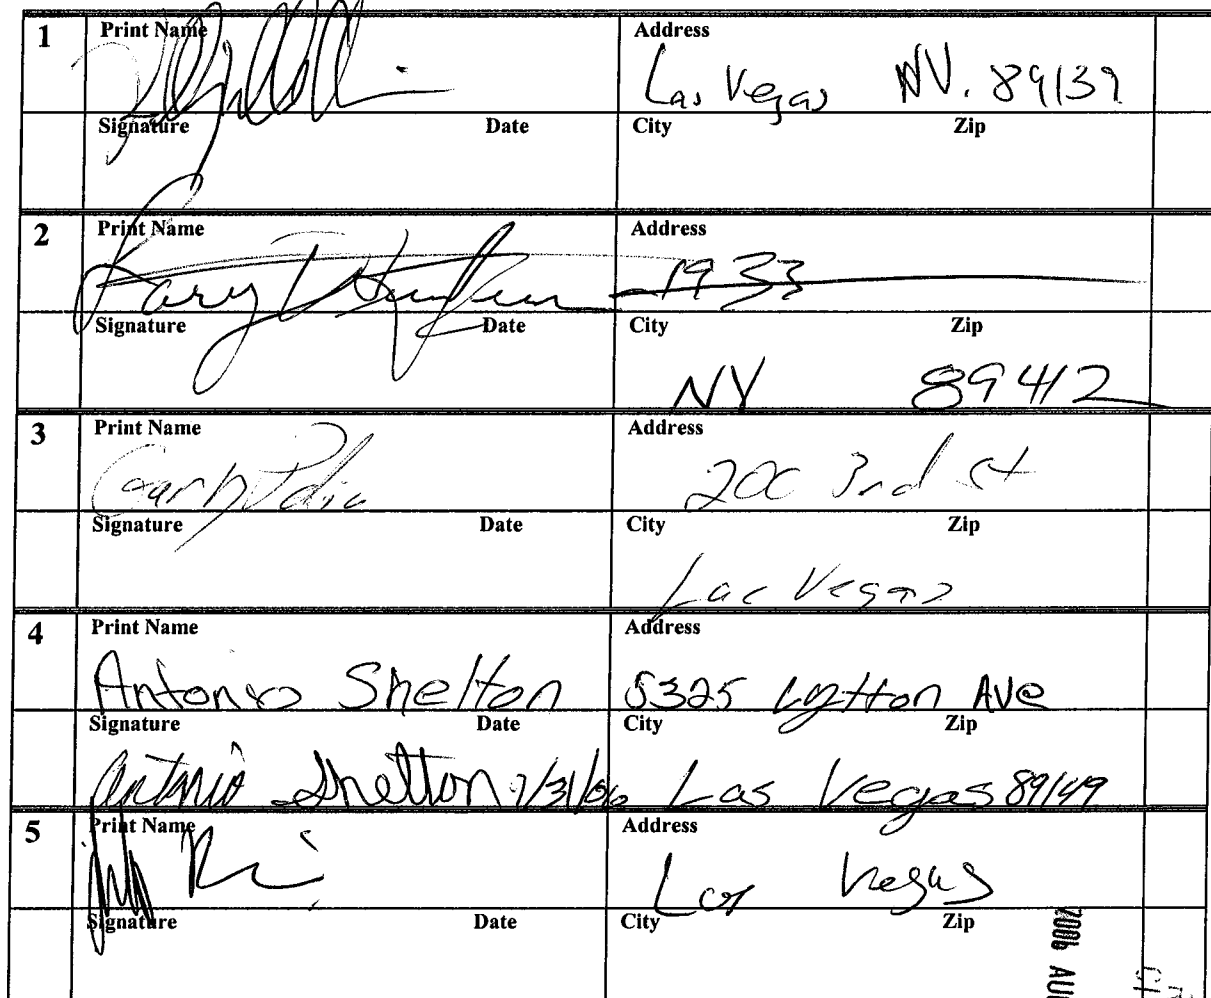 1 Print Name Address
Las Vegas NV. 89139
Signature Date City Zip
2 Print Name Address
1933
Signature Date City Zip
NV 89412
3 Print Name Address
200 3rd St
Signature Date City Zip
Las Vegas
4 Print Name Address
Antonio Shelton 5325 Lytton Ave
Signature Date City Zip
Antonio Shelton 7/31/06 Las Vegas 89149
5 Print Name Address
Las Vegas
Signature Date City Zip
2006 AU